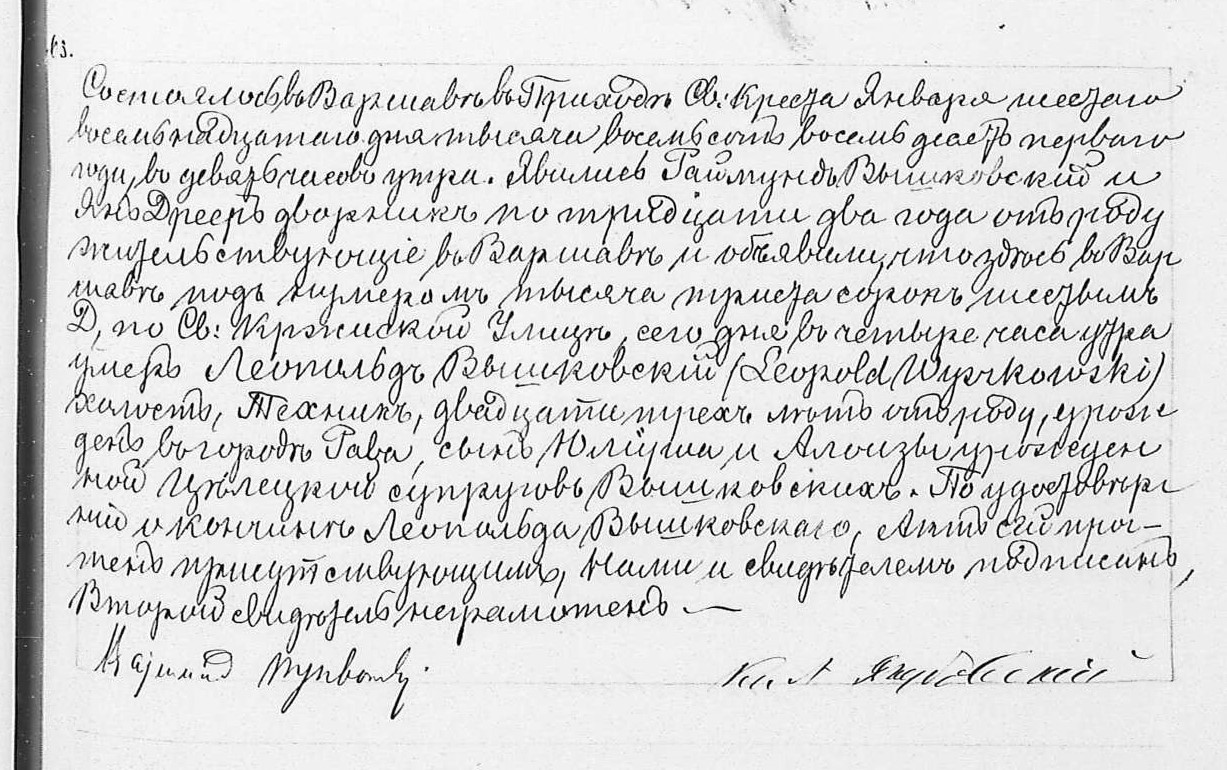 63.
Состоялось въ Варшавѣ въ Приходѣ Св: Креста Января шестаго
восемьнадцатаго дня тысяча восемьсотъ восемьдесятъ перваго
года, въ девять часовъ утра. Явились Раймундъ Вышковский и
Янъ Дрееръ дворникъ по тридцати два года отъ роду
жительствующіе въ Варшавѣ и объявили, что здѣсь въ Вар
шавѣ подъ нумеромъ тысяча триста сорокъ шестымъ
Д, по Св: Кржиской Улицѣ, сего дня въ четыре часа утра
умеръ Леопольдъ Вышковскій (Leopold Wyszkowski)
холостъ, Техникъ, двадцати трехъ лѣтъ отъ роду, урож
денъ въ городѣ Рава, сынъ Юліуша и Алоизы урожден
ной Цѣлецкихъ супруговъ Вышковскихъ. По удостовѣре
ніи о кончинѣ Леопольда Вышковскаго, Актъ сей проч-
тенъ присутствующимъ, Нами и свидѣтелемъ подписанъ,
Второй свидѣтель неграмотенъ —
Rajmund Wyszkowski